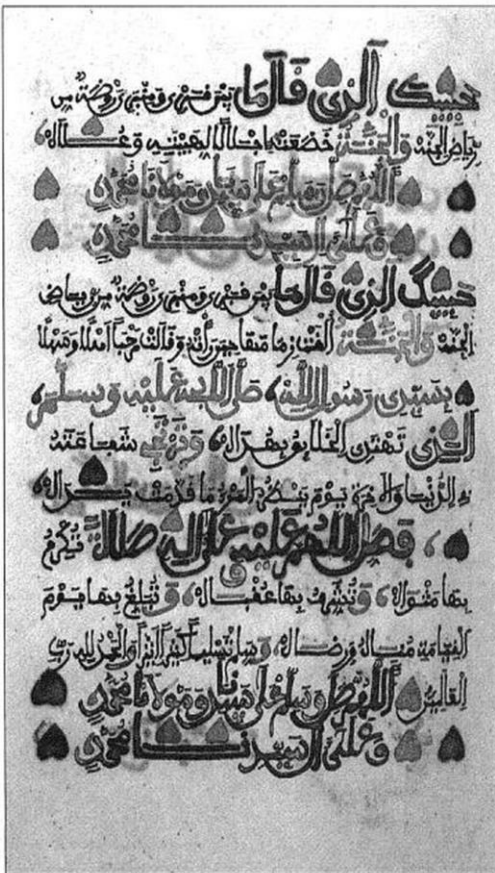 حبيبك الذي قال ما بين قبري ومنبري روضة من
رياض الجنة والجنة خضعت إجلالا لهيبته وعلاه
اللهم صل وسلم على سيدنا ومولانا محمد
وعلى آل سيدنا محمد
حبيبك الذي قال ما بين قبري ومنبري روضة من رياض
الجنة حين رأته وقالت مرحبا أهلا وسهلا
بسيدي رسول الله، صلى الله عليه وسلم،
الذي تهتدي الخلائق بهداه، وترتجى شفاعته
في الدنيا والاخرة يوم ينظر المرء ما قدمت يداه،
فصل اللهم عليه وعلى آله صلاة تكرم
بها مثواه، وتشرف بها عقباه، وتبلغ بها يوم
القيامة مناه ورضاه، وسلم تسليما كثيرا والحمد لله رب
العالمين اللهم صل وسلم على سيدنا ومولانا محمد
وعلى آل سيدنا محمد